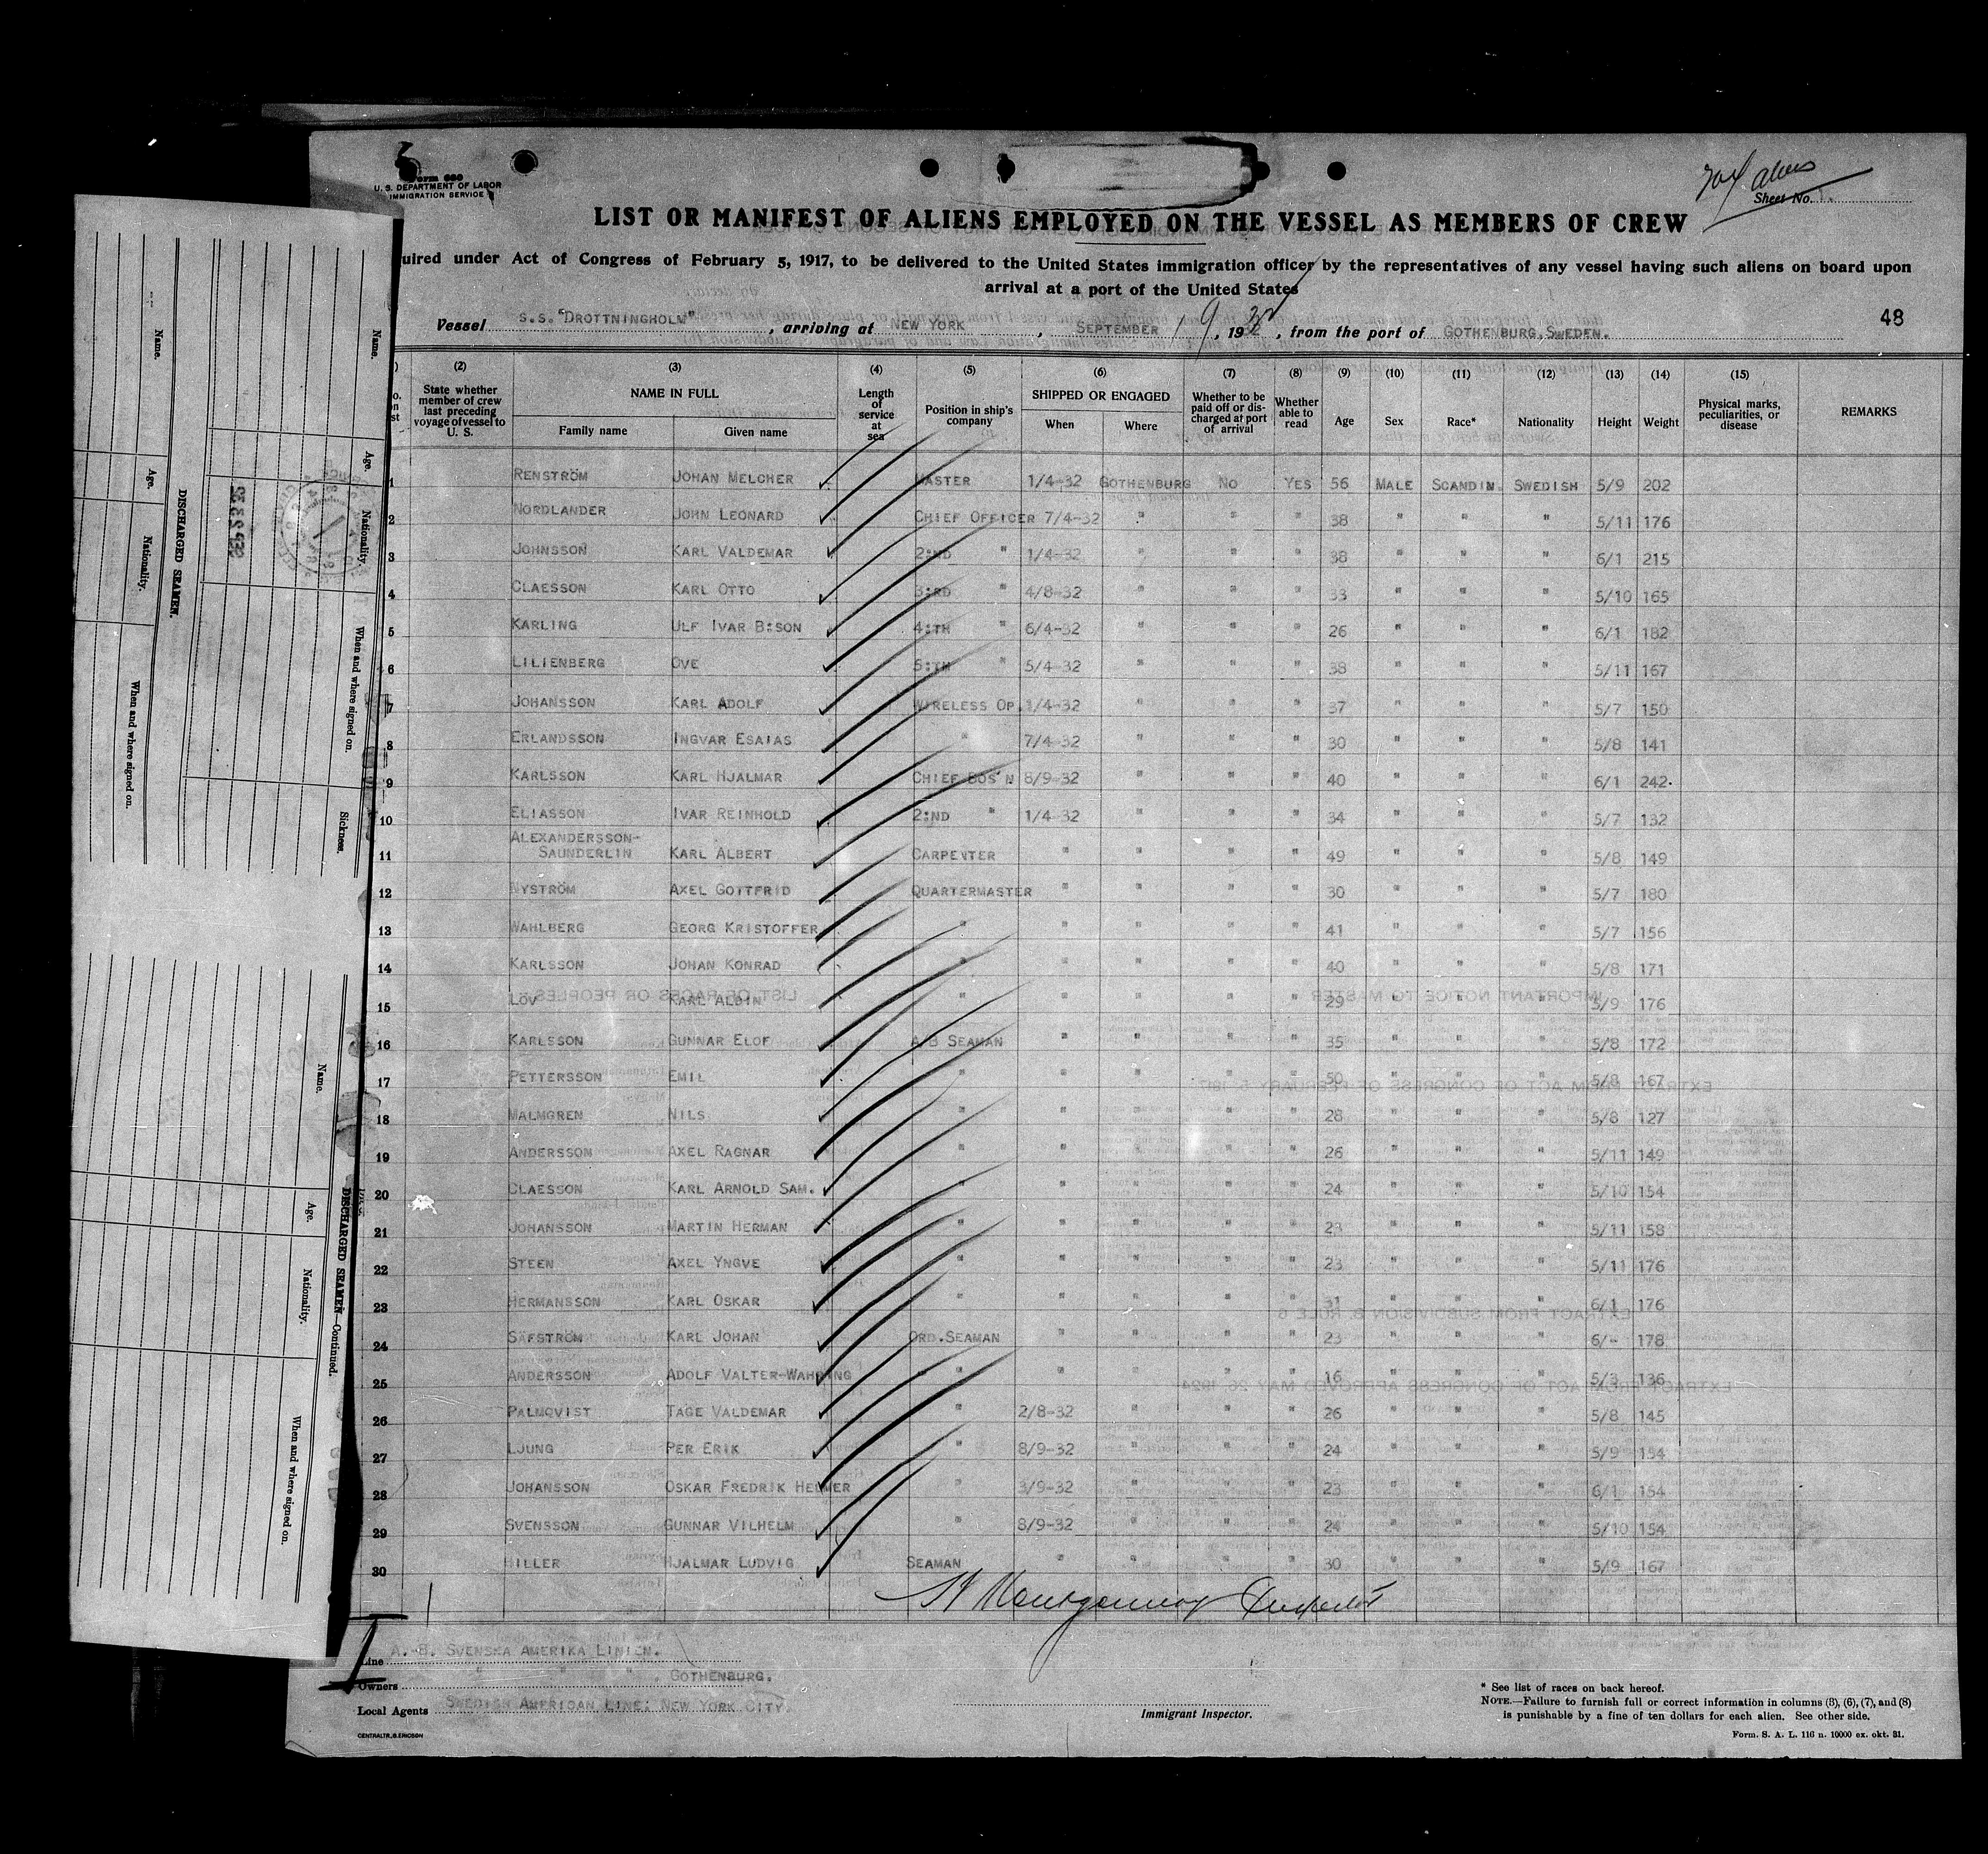 Form 680
U. S. DEPARTMENT OF LABOR
IMMIGRATION SERVICE
aliens
Sheet No.
LIST OR MANIFEST OF ALIENS EMPLOYED ON THE VESSEL AS MEMBERS OF CREW
uired under Act of Congress of February 5, 1917, to be delivered to the United States immigration officer by the representatives of any vessel having such aliens on board upon
arrival at a port of the United States
48
Vessel S.S. "DROTTNINGHOLM", arriving at NEW YORK, SEPTEMBER 19, 1932, from the port of GOTHENBURG, SWEDEN.
(2) (3) (4) (5) (6) (7) (8) (9) (10) (11) (12) (13) (14) (15)
State whether member of crew last preceding voyage of vessel to U. S. | NAME IN FULL | Family name | Given name | Length of service at sea | Position in ship's company | SHIPPED OR ENGAGED | When | Where | Whether to be paid off or discharged at port of arrival | Whether able to read | Age | Sex | Race* | Nationality | Height | Weight | Physical marks, peculiarities, or disease | REMARKS
1 RENSTRÖM JOHAN MELCHER MASTER 1/4-32 GOTHENBURG NO YES 56 MALE SCANDIN. SWEDISH 5/9 202
2 NORDLANDER JOHN LEONARD CHIEF OFFICER 7/4-32 " " " 38 " " " 5/11 176
3 JOHNSSON KARL VALDEMAR 2:ND " 1/4-32 " " " 38 " " " 6/1 215
4 CLAESSON KARL OTTO 3:RD " 4/8-32 " " " 33 " " " 5/10 165
5 KARLING ULF IVAR B:SON 4:TH " 6/4-32 " " " 26 " " " 6/1 182
6 LILIENBERG OVE 5:TH " 5/4-32 " " " 38 " " " 5/11 167
7 JOHANSSON KARL ADOLF WIRELESS OP. 1/4-32 " " " 37 " " " 5/7 150
8 ERLANDSSON INGVAR ESAIAS " 7/4-32 " " " 30 " " " 5/8 141
9 KARLSSON KARL HJALMAR CHIEF BOS'N 8/9-32 " " " 40 " " " 6/1 242
10 ELIASSON IVAR REINHOLD 2:ND " 1/4-32 " " " 34 " " " 5/7 132
ALEXANDERSSON-
11 SAUNDERLIN KARL ALBERT CARPENTER " " " " 49 " " " 5/8 149
12 NYSTRÖM AXEL GOTTFRID QUARTERMASTER " " " " 30 " " " 5/7 180
13 WAHLBERG GEORG KRISTOFFER " " " " " 41 " " " 5/7 156
14 KARLSSON JOHAN KONRAD " " " " " 40 " " " 5/8 171
15 LÖV KARL ALBIN " " " " " 29 " " " 5/9 176
16 KARLSSON GUNNAR ELOF A/B SEAMAN " " " " 35 " " " 5/8 172
17 PETTERSSON EMIL " " " " " 50 " " " 5/8 167
18 MALMGREN NILS " " " " " 28 " " " 5/8 127
19 ANDERSSON AXEL RAGNAR " " " " " 26 " " " 5/11 149
20 CLAESSON KARL ARNOLD SAM. " " " " " 24 " " " 5/10 154
21 JOHANSSON MARTIN HERMAN " " " " " 23 " " " 5/11 158
22 STEEN AXEL YNGVE " " " " " 23 " " " 5/11 176
23 HERMANSSON KARL OSKAR " " " " " 31 " " " 6/1 176
24 SÄFSTRÖM KARL JOHAN ORD. SEAMAN " " " " 23 " " " 6/- 178
25 ANDERSSON ADOLF VALTER-WAHRING " " " " " 16 " " " 5/3 136
26 PALMQVIST TAGE VALDEMAR " 2/8-32 " " " 26 " " " 5/8 145
27 LJUNG PER ERIK " 8/9-32 " " " 24 " " " 5/9 154
28 JOHANSSON OSKAR FREDRIK HELMER " 3/9-32 " " " 23 " " " 6/1 154
29 SVENSSON GUNNAR VILHELM " 8/9-32 " " " 24 " " " 5/10 154
30 HILLER HJALMAR LUDVIG SEAMAN " " " " 30 " " " 5/9 167
Montgomery Inspector
Line A.-B. SVENSKA AMERIKA LINIEN.
Owners " " " GOTHENBURG.
Local Agents SWEDISH AMERICAN LINE: NEW YORK CITY.
Immigrant Inspector.
CENTRALTR., G. ERICSON
* See list of races on back hereof.
NOTE.—Failure to furnish full or correct information in columns (3), (6), (7), and (8)
is punishable by a fine of ten dollars for each alien. See other side.
Form. S. A. L. 116 n. 10000 ex. okt. 31.
DISCHARGED SEAMEN.
Name. Age. Nationality. When and where signed on.
Name. Age. Nationality. When and where signed on. Sickness.
DISCHARGED SEAMEN—Continued.
Name. Age. Nationality. When and where signed on.